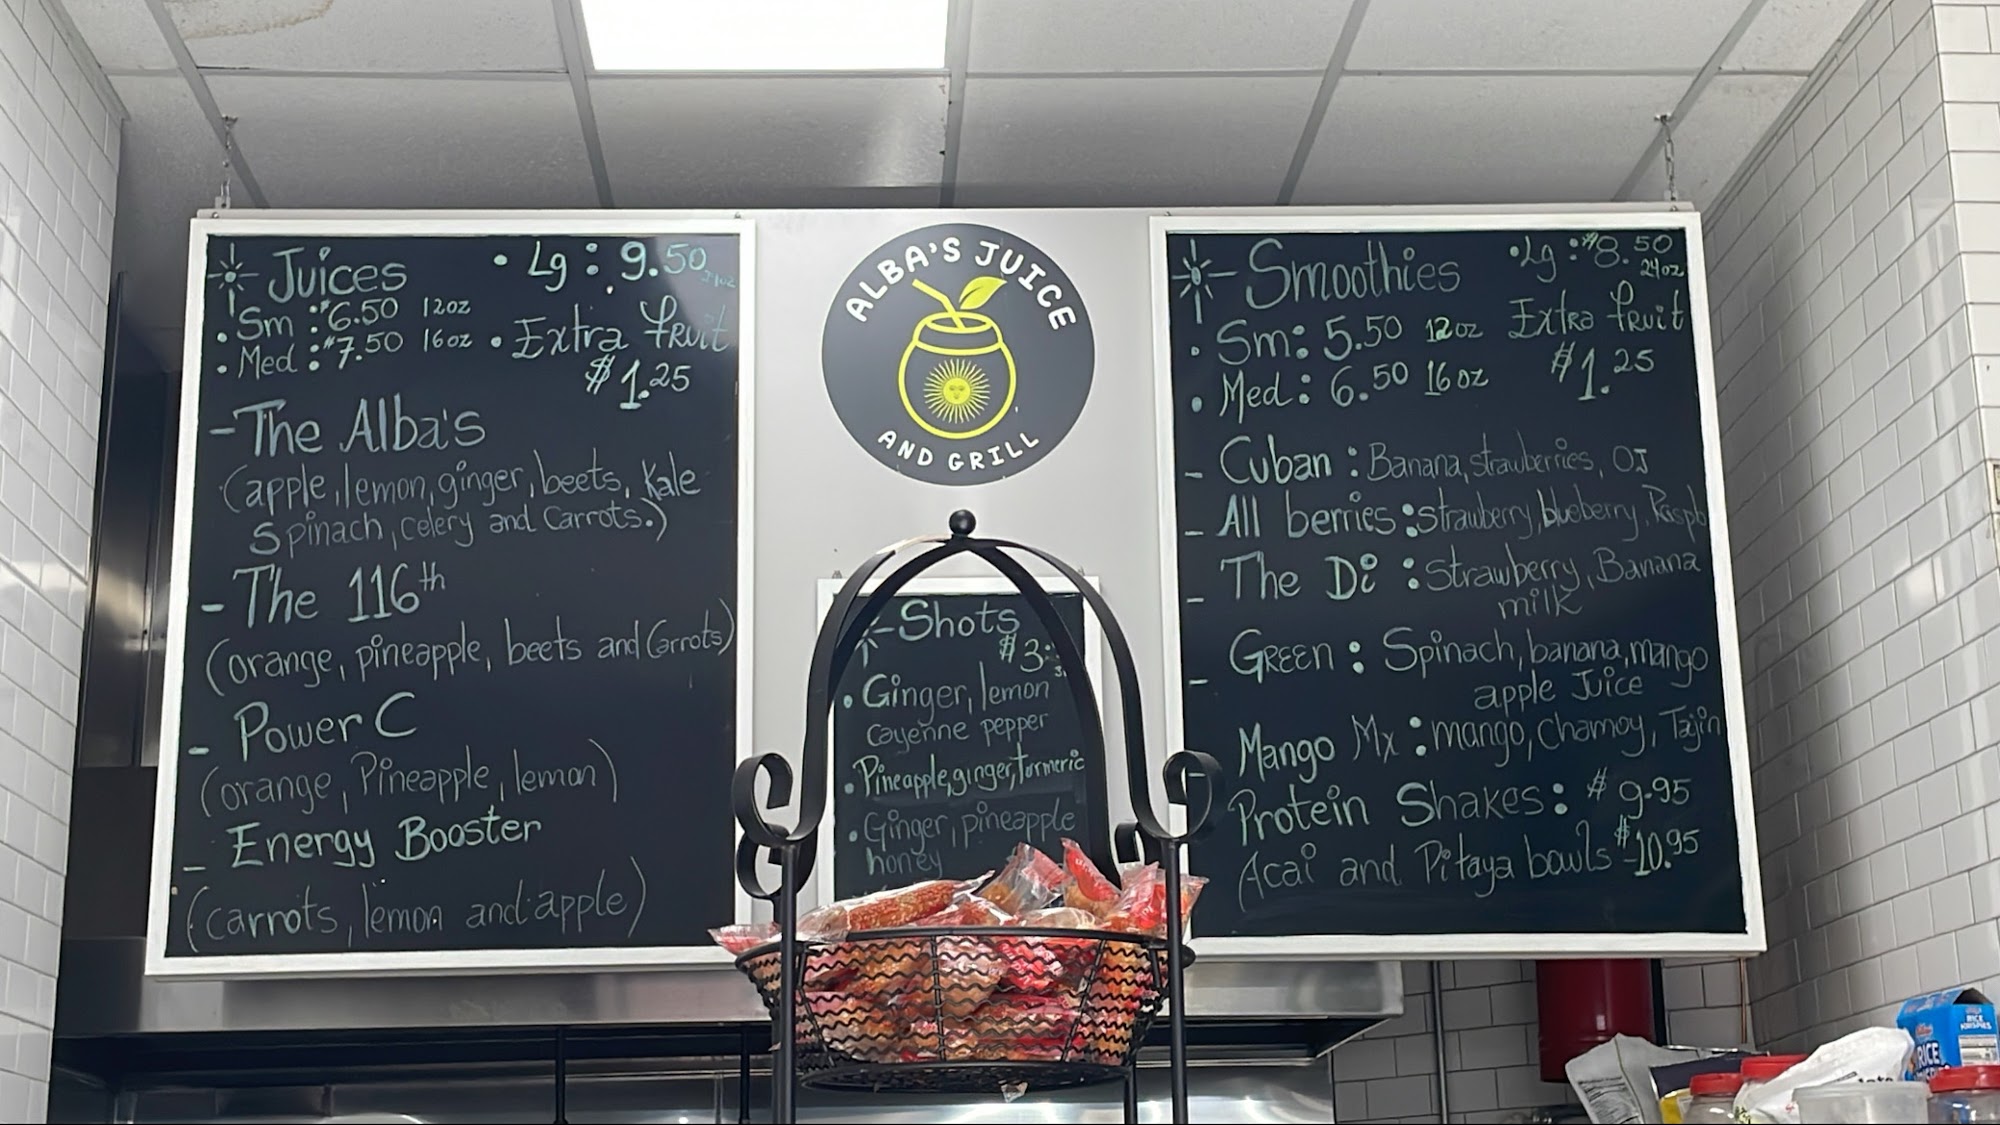 Juices
• Lg : 9.50
• Sm : $6.50 12oz
• Med : $7.50 16oz
• Extra fruit
$1.25
- The Alba's
(apple, lemon, ginger, beets, Kale
Spinach, celery and Carrots.)
- The 116th
(orange, pineapple, beets and Carrots)
- Power C
(orange, Pineapple, lemon)
- Energy Booster
(carrots, lemon and apple)
ALBA'S JUICE
AND GRILL
Shots
$3.
• Ginger, lemon
cayenne pepper
• Pineapple, ginger, turmeric
• Ginger, pineapple
honey
Smoothies
• Lg : $8.50
24oz
• Sm : 5.50 12oz
Extra fruit
• Med : 6.50 16oz
$1.25
- Cuban : Banana, strawberries, OJ
- All berries : strawberry, blueberry, Raspb
- The Di : Strawberry, Banana
milk
- GREEN : Spinach, banana, mango
apple Juice
- Mango Mx : mango, Chamoy, Tajin
Protein Shakes : $9.95
Acai and Pitaya bowls $10.95
RICE
KRISPIES
RICE